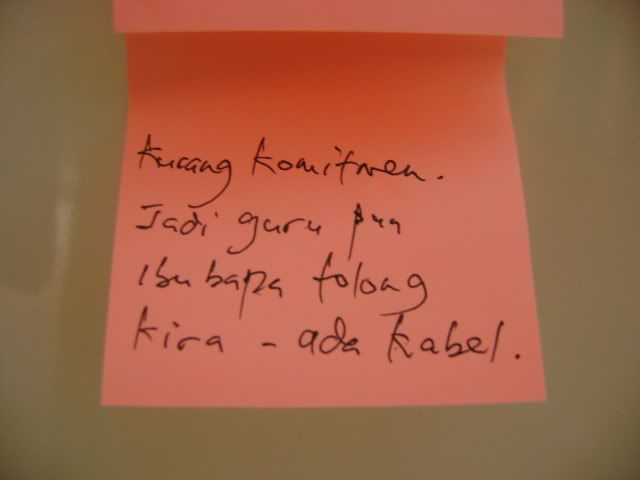 Kurang komitmen.
Jadi guru pun
ibu bapa tolong
kira - ada kabel.